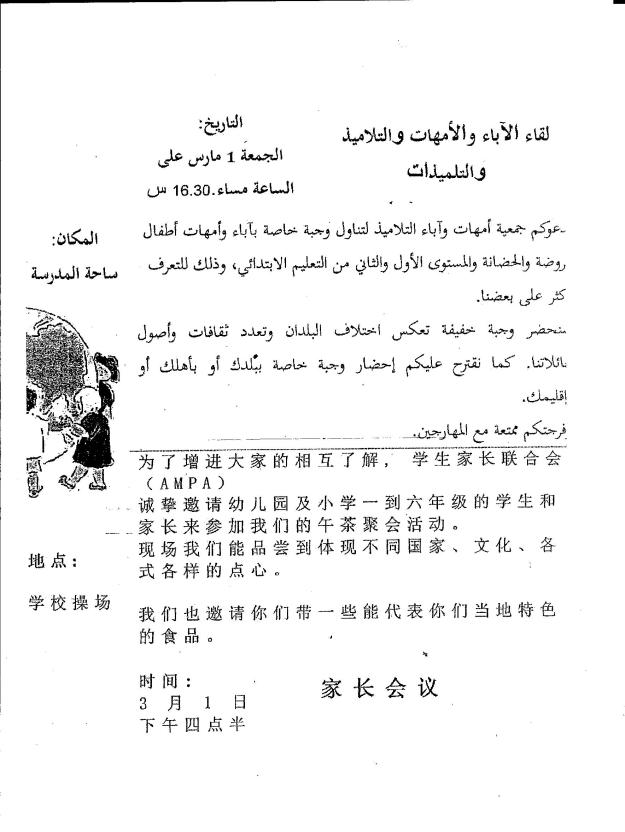 لقاء الآباء والأمهات والتلاميذ
والتلميذات
التاريخ:
الجمعة 1 مارس على
الساعة مساء.16.30 س
المكان:
ساحة المدرسة
جمعية أمهات وآباء التلاميذ لتناول وجبة خاصة بآباء وأمهات أطفال
والحضانة والمستوى الأول والثاني من التعليم الابتدائي، وذلك للتعرف
على بعضنا.
وجبة خفيفة تعكس اختلاف البلدان وتعدد ثقافات وأصول
كما نقترح عليكم إحضار وجبة خاصة ببلدك أو بأهلك أو
إقليمك.
فرجتكم ممتعة مع المهارجين.
为了增进大家的相互了解, 学生家长联合会
(AMPA)
诚挚邀请幼儿园及小学一到六年级的学生和
家长来参加我们的午茶聚会活动。
现场我们能品尝到体现不同国家、文化、各
式各样的点心。
地点:
学校操场
我们也邀请你们带一些能代表你们当地特色
的食品。
时间:
3 月 1 日
下午四点半
家长会议